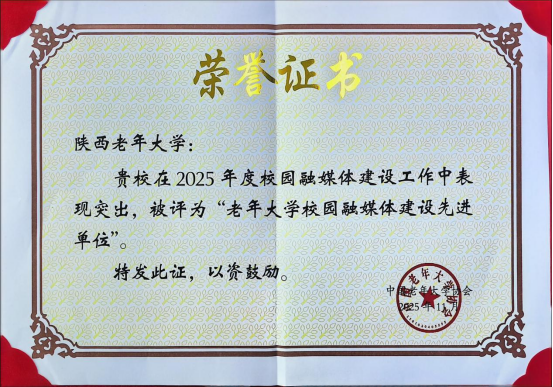 荣誉证书
陕西老年大学：
贵校在2025年度校园融媒体建设工作中表
现突出，被评为“老年大学校园融媒体建设先进
单位”。
特发此证，以资鼓励。
中国老年大学协会
2025年11月